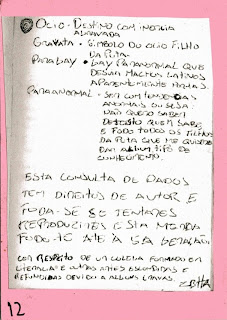 OCIO - DESTINO COM INERCIA
AGRAVADA
GRAVATA - SIMBOLO DO OCIO FILHO
DA PUTA
PARAGAY - GAY PARANORMAL QUE
DESVIA MACHOS LATINOS
APARENTEMENTE
PARANORMAL - SER COM
ANORMAIS OU SEJA
NÃO QUERO SABER
QUEM SABE
E FODO TODOS OS FILHOS
DA PUTA QUE ME
EM ALGUM TIPO DE
CONHECIMENTO.
ESTA CONSULTA DE DADOS
TEM DIREITOS DE AUTOR E
FODA-SE SE TENTARES
REPRODUZIRES ESTA MERDA
FODO-TE ATÉ À 5ª GERAÇÃO
COM RESPEITO DE UM COLEGA FORMADO EM
LITERACIA E OUTRAS ARTES ESCONDIDAS E
DEVIDO A ALGUNS
12